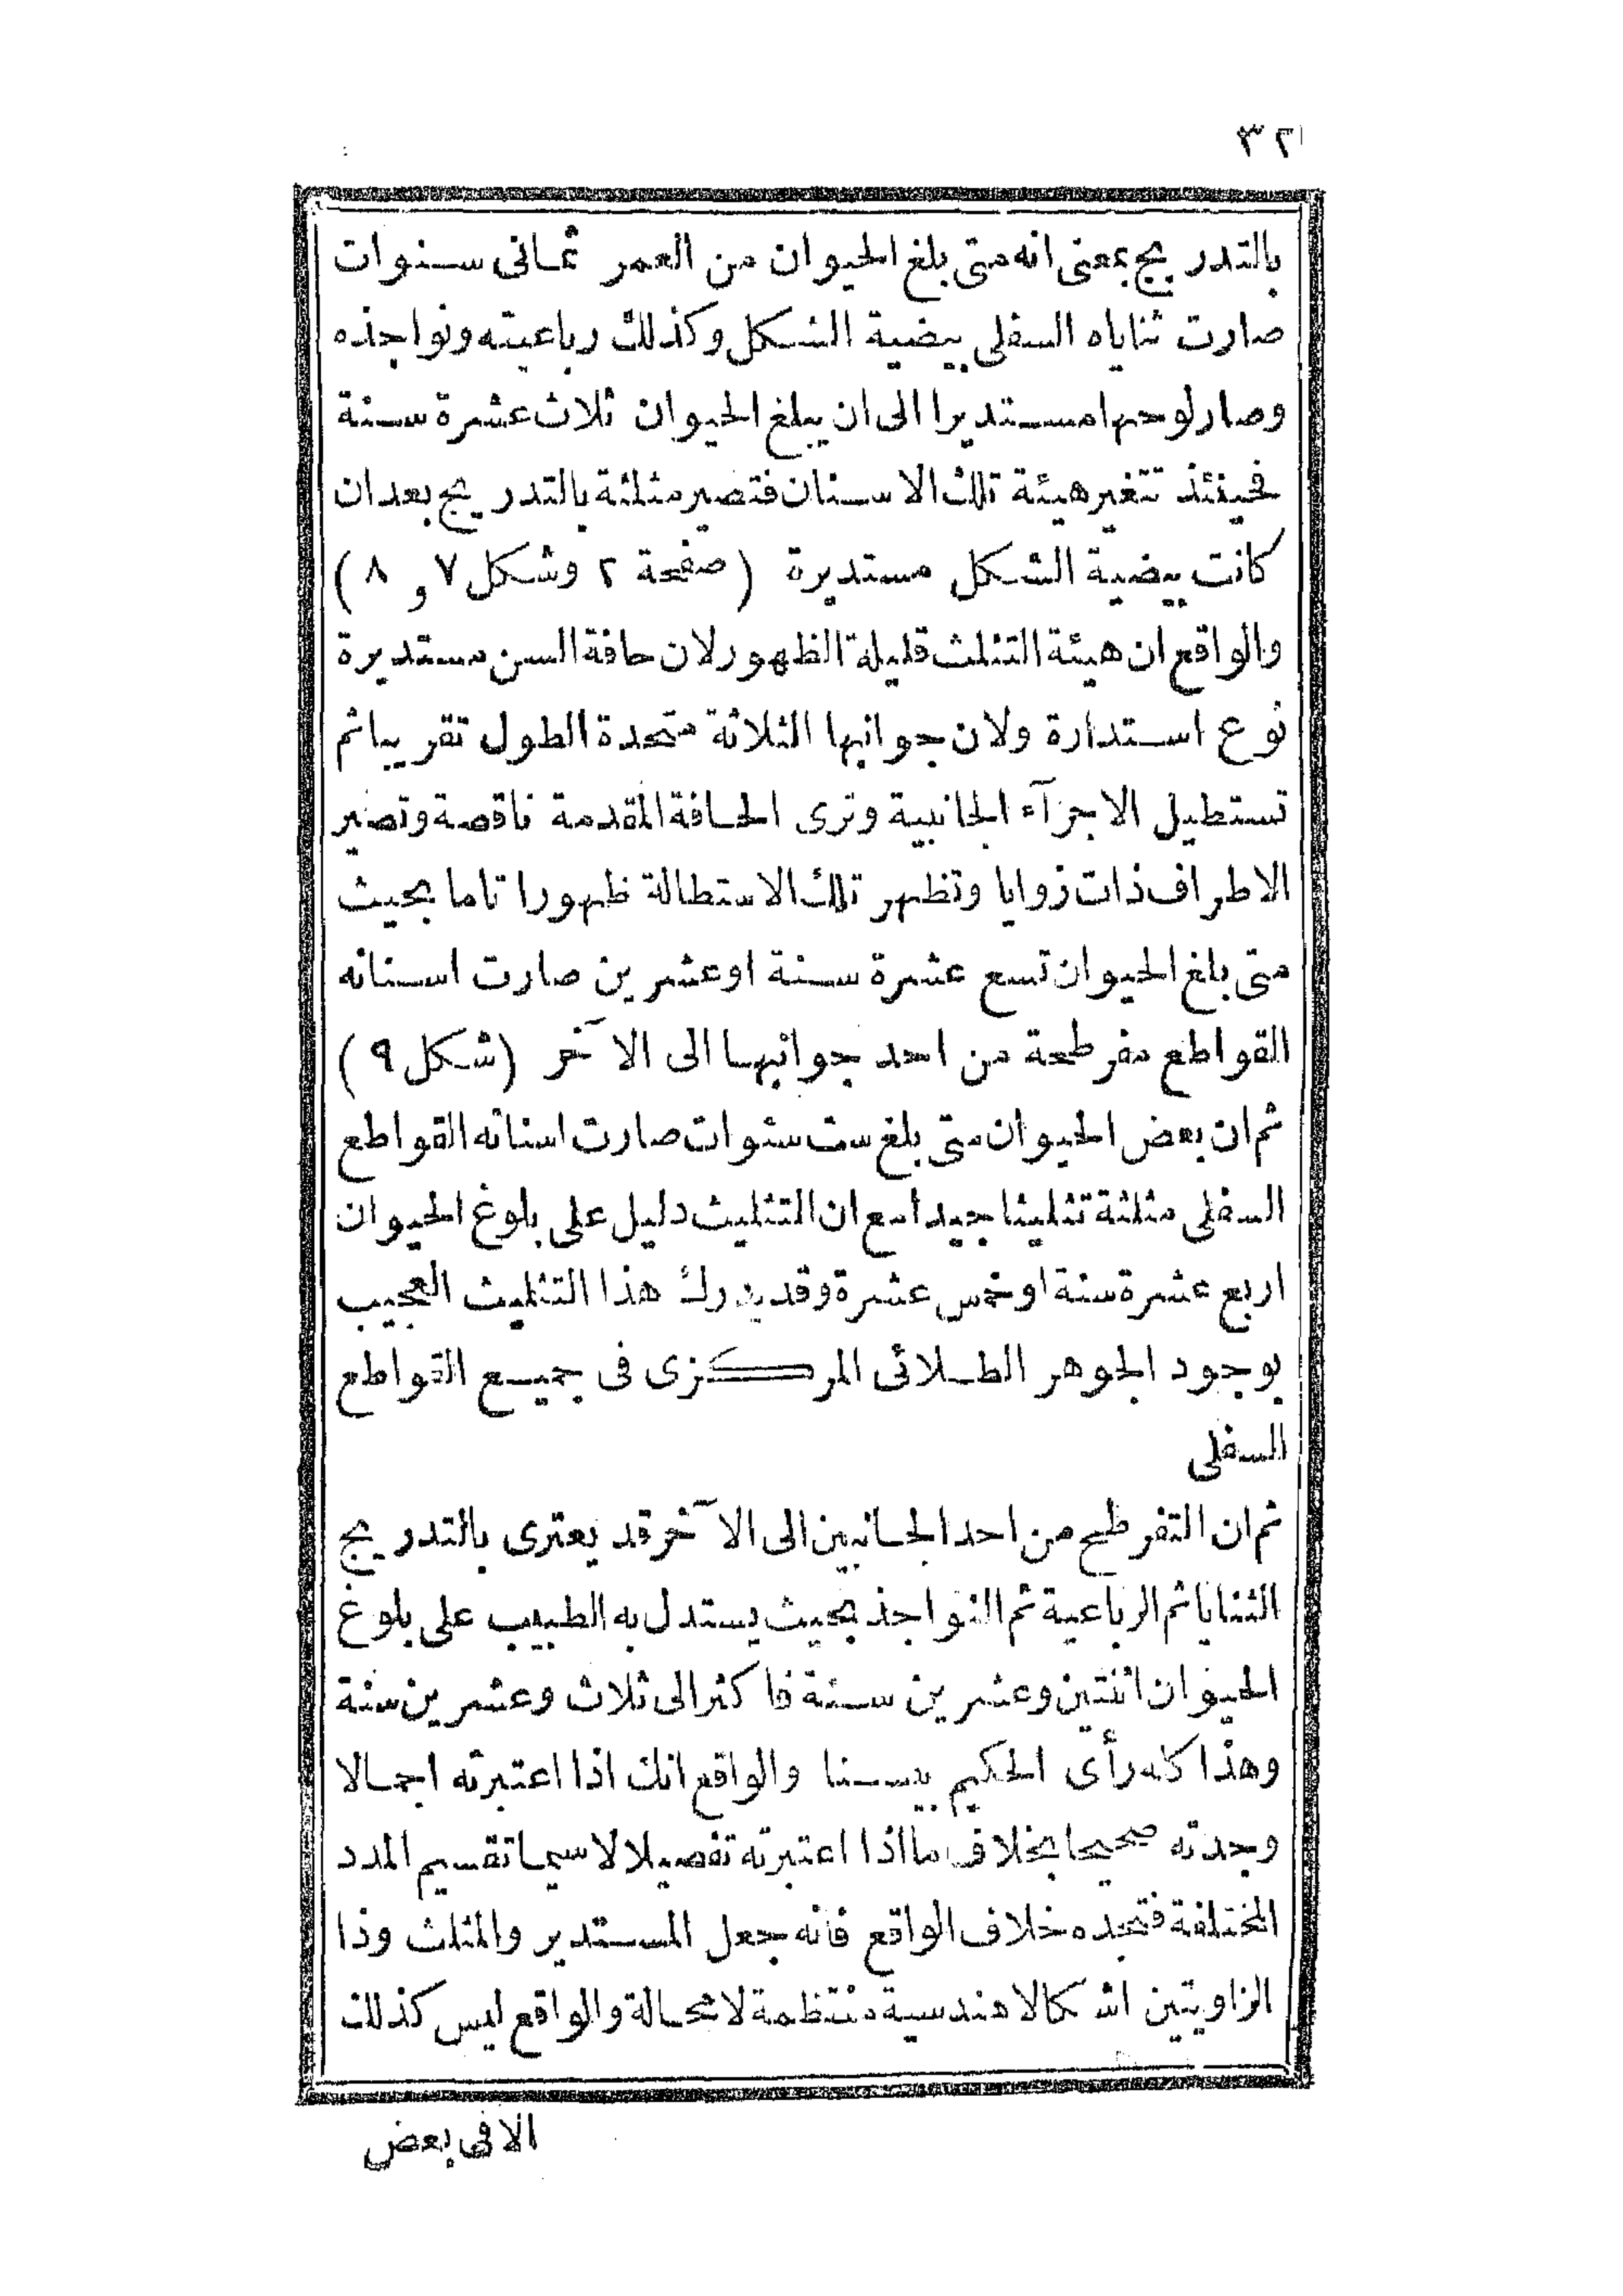 ٣٢
بالتدريج بمعنى انه متى بلغ الحيوان من العمر ثمانى سنوات
صارت ثناياه السفلى بيضية الشكل وكذلك رباعيته ونواجذه
وصار لوحها مستديرا الى ان يبلغ الحيوان ثلاث عشرة سنة
فحينئذ تتغير هيئة تلك الاسنان فتصير مثلثة بالتدريج بعد ان
كانت بيضية الشكل مستديرة (صفحة ٢ وشكل ٧ و ٨)
والواقع ان هيئة التثلث قليلة الظهور لان حافة السن مستديرة
نوع استدارة ولان جوانبها الثلاثة متحدة الطول تقريبا ثم
تستطيل الاجزآء الجانبية وترى الحافة المقدمة ناقصة وتصير
الاطراف ذات زوايا وتظهر تلك الاستطالة ظهورا تاما بحيث
متى بلغ الحيوان تسع عشرة سنة او عشرين صارت اسنانه
القواطع مفرطحة من احد جوانبها الى الآخر (شكل ٩)
ثم ان بعض الحيوان متى بلغ ست سنوات صارت اسنانه القواطع
السفلى مثلثة تثليثا جيدا مع ان التثليث دليل على بلوغ الحيوان
اربع عشرة سنة او خمس عشرة وقد يدرك هذا التثليث العجيب
بوجود الجوهر الطلائى المركزى فى جميع القواطع
السفلى
ثم ان التفرطح من احد الجانبين الى الآخر قد يعترى بالتدريج
الثنايا ثم الرباعية ثم النواجذ بحيث يستدل به الطبيب على بلوغ
الحيوان اثنتين وعشرين سنة فاكثر الى ثلاث وعشرين سنة
وهذا كله رأى الحكيم بيسنا والواقع انك اذا اعتبرته اجمالا
وجدته صحيحا بخلاف ما اذا اعتبرته تفصيلا لاسيما تقسيم المدد
المختلفة فتجده خلاف الواقع فانه جعل المستدير والمثلث وذا
الزاويتين اشكالا هندسية منتظمة لا محالة والواقع ليس كذلك
الا فى بعض